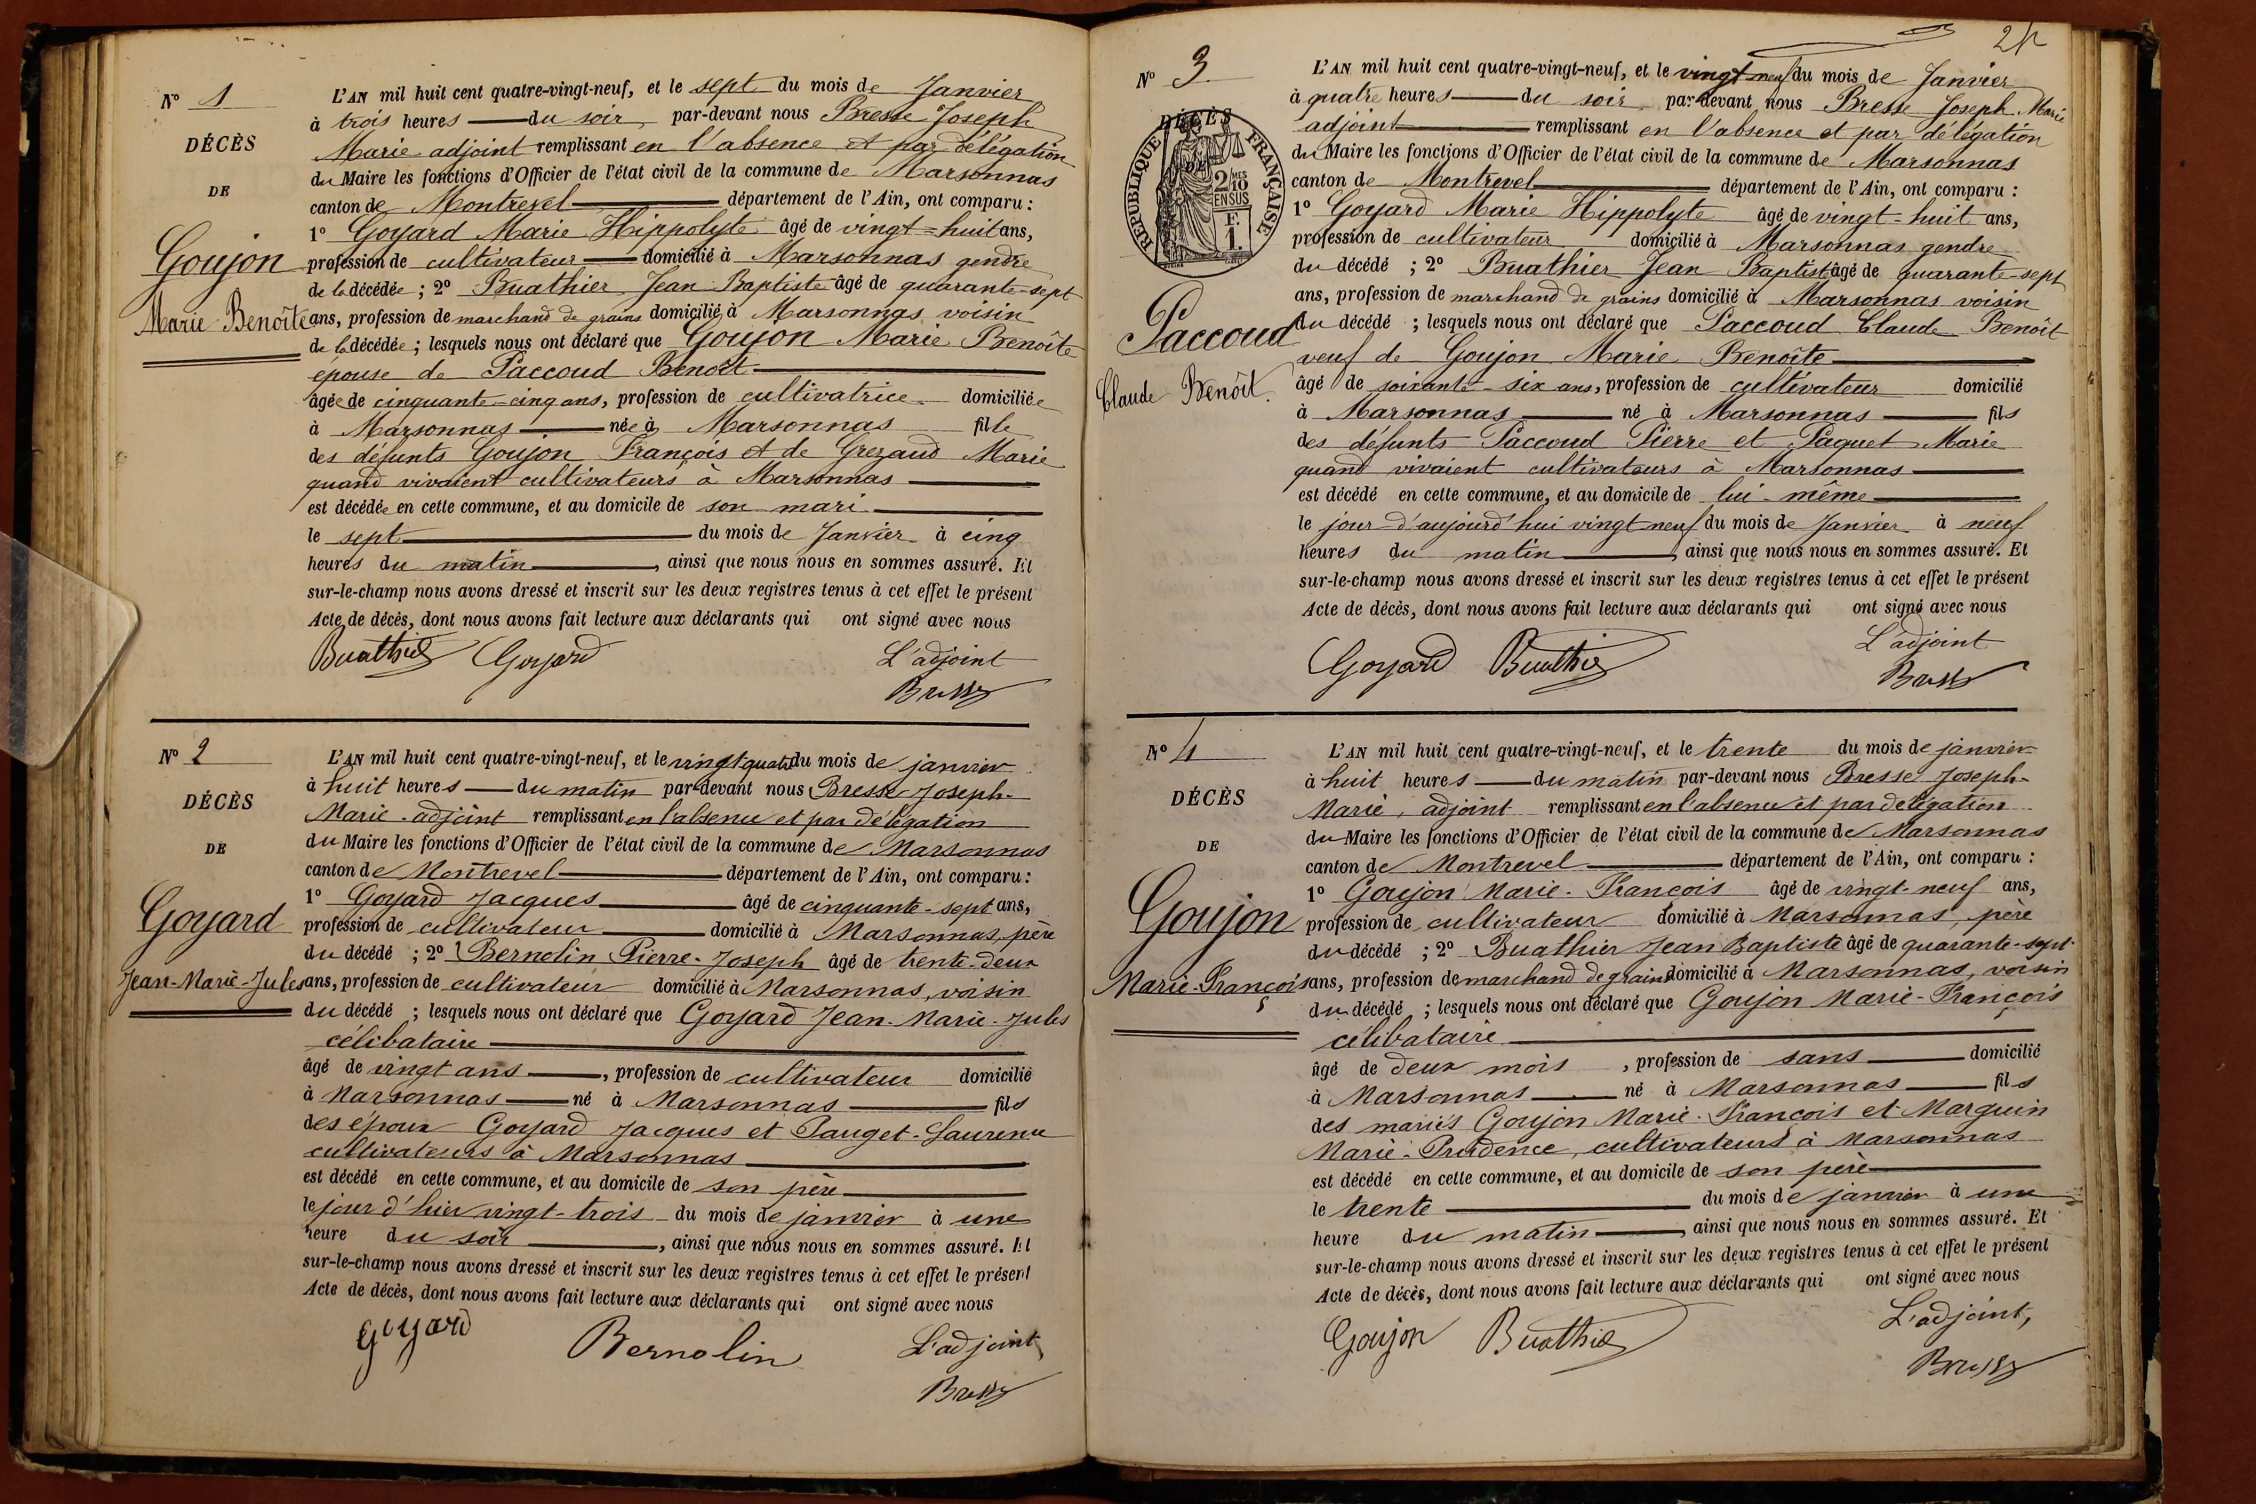 N° 1
DÉCÈS
DE
Goujon
Marie Benoîte
L'AN mil huit cent quatre-vingt-neuf, et le sept du mois de Janvier
à trois heures du soir, par-devant nous Bresse Joseph
Marie adjoint remplissant en l'absence et par délégation
du Maire les fonctions d'Officier de l'état civil de la commune de Marsonnas
canton de Montrevel département de l'Ain, ont comparu :
1° Goyard Marie Hippolyte âgé de vingt-huit ans,
profession de cultivateur domicilié à Marsonnas gendre
de la décédée ; 2° Buathier Jean Baptiste âgé de quarante-sept
ans, profession de marchand de grains domicilié à Marsonnas voisin
de la décédée ; lesquels nous ont déclaré que Goujon Marie Benoîte
épouse de Paccoud Benoît
âgée de cinquante-cinq ans, profession de cultivatrice domiciliée
à Marsonnas née à Marsonnas fille
des défunts Goujon François et de Grezaud Marie
quand vivaient cultivateurs à Marsonnas
est décédée en cette commune, et au domicile de son mari
le sept du mois de Janvier à cinq
heures du matin, ainsi que nous nous en sommes assuré. Et
sur-le-champ nous avons dressé et inscrit sur les deux registres tenus à cet effet le présent
Acte de décès, dont nous avons fait lecture aux déclarants qui ont signé avec nous
Buathier Goyard L'adjoint
Bresse
N° 2
DÉCÈS
DE
Goyard
Jean-Marie-Jules
L'AN mil huit cent quatre-vingt-neuf, et le vingt quatre du mois de janvier
à huit heures du matin par-devant nous Bresse Joseph-
Marie adjoint remplissant en l'absence et par délégation
du Maire les fonctions d'Officier de l'état civil de la commune de Marsonnas
canton de Montrevel département de l'Ain, ont comparu :
1° Goyard Jacques âgé de cinquante-sept ans,
profession de cultivateur domicilié à Marsonnas, père
du décédé ; 2° Bernolin Pierre-Joseph âgé de trente-deux
ans, profession de cultivateur domicilié à Marsonnas, voisin
du décédé ; lesquels nous ont déclaré que Goyard Jean-Marie-Jules
célibataire
âgé de vingt ans, profession de cultivateur domicilié
à Marsonnas né à Marsonnas fils
des époux Goyard Jacques et Pauget-Laurence
cultivateurs à Marsonnas
est décédé en cette commune, et au domicile de son père
le jour d'hier vingt-trois du mois de janvier à une
heure du soir, ainsi que nous nous en sommes assuré. Et
sur-le-champ nous avons dressé et inscrit sur les deux registres tenus à cet effet le présent
Acte de décès, dont nous avons fait lecture aux déclarants qui ont signé avec nous
Goyard Bernolin L'adjoint,
Bresse
N° 3
DÉCÈS
RÉPUBLIQUE FRANÇAISE
2 MES
10
EN SUS
F.
1.
Paccoud
Claude Benoît.
L'AN mil huit cent quatre-vingt-neuf, et le vingt neuf du mois de Janvier
à quatre heures du soir, par-devant nous Bresse Joseph Marie
adjoint remplissant en l'absence et par délégation
du Maire les fonctions d'Officier de l'état civil de la commune de Marsonnas
canton de Montrevel département de l'Ain, ont comparu :
1° Goyard Marie Hippolyte âgé de vingt-huit ans,
profession de cultivateur domicilié à Marsonnas gendre
du décédé ; 2° Buathier Jean Baptiste âgé de quarante-sept
ans, profession de marchand de grains domicilié à Marsonnas voisin
du décédé ; lesquels nous ont déclaré que Paccoud Claude Benoît
veuf de Goujon Marie Benoîte
âgé de soixante-six ans, profession de cultivateur domicilié
à Marsonnas né à Marsonnas fils
des défunts Paccoud Pierre et Paquet Marie
quand vivaient cultivateurs à Marsonnas
est décédé en cette commune, et au domicile de lui-même
le jour d'aujourd'hui vingt neuf du mois de Janvier à neuf
heures du matin, ainsi que nous nous en sommes assuré. Et
sur-le-champ nous avons dressé et inscrit sur les deux registres tenus à cet effet le présent
Acte de décès, dont nous avons fait lecture aux déclarants qui ont signé avec nous
Goyard Buathier L'adjoint
Bresse
N° 4
DÉCÈS
DE
Goujon
Marie-François
L'AN mil huit cent quatre-vingt-neuf, et le trente du mois de janvier
à huit heures du matin par-devant nous Bresse Joseph-
Marie, adjoint remplissant en l'absence et par délégation
du Maire les fonctions d'Officier de l'état civil de la commune de Marsonnas
canton de Montrevel département de l'Ain, ont comparu :
1° Goujon Marie-François âgé de vingt-neuf ans,
profession de cultivateur domicilié à Marsonnas, père
du décédé ; 2° Buathier Jean Baptiste âgé de quarante-sept
ans, profession de marchand de grains domicilié à Marsonnas, voisin
du décédé ; lesquels nous ont déclaré que Goujon Marie-François
célibataire
âgé de deux mois, profession de sans domicilié
à Marsonnas né à Marsonnas fils
des mariés Goujon Marie-François et Marguin
Marie-Prudence, cultivateurs à Marsonnas
est décédé en cette commune, et au domicile de son père
le trente du mois de janvier à une
heure du matin, ainsi que nous nous en sommes assuré. Et
sur-le-champ nous avons dressé et inscrit sur les deux registres tenus à cet effet le présent
Acte de décès, dont nous avons fait lecture aux déclarants qui ont signé avec nous
Goujon Buathier L'adjoint,
Bresse